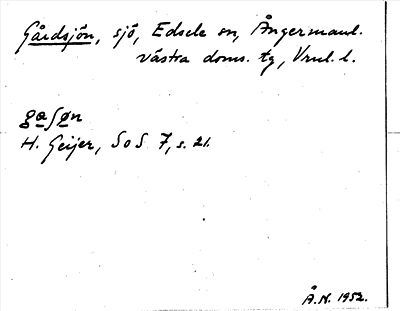 Gårdsjön, sjö, Edsele sn, Ångermanl.
västra doms. tg, Vrnl. l.
gɑʃøn
H. Geijer, SoS 7, s. 21.
Å.N. 1952.